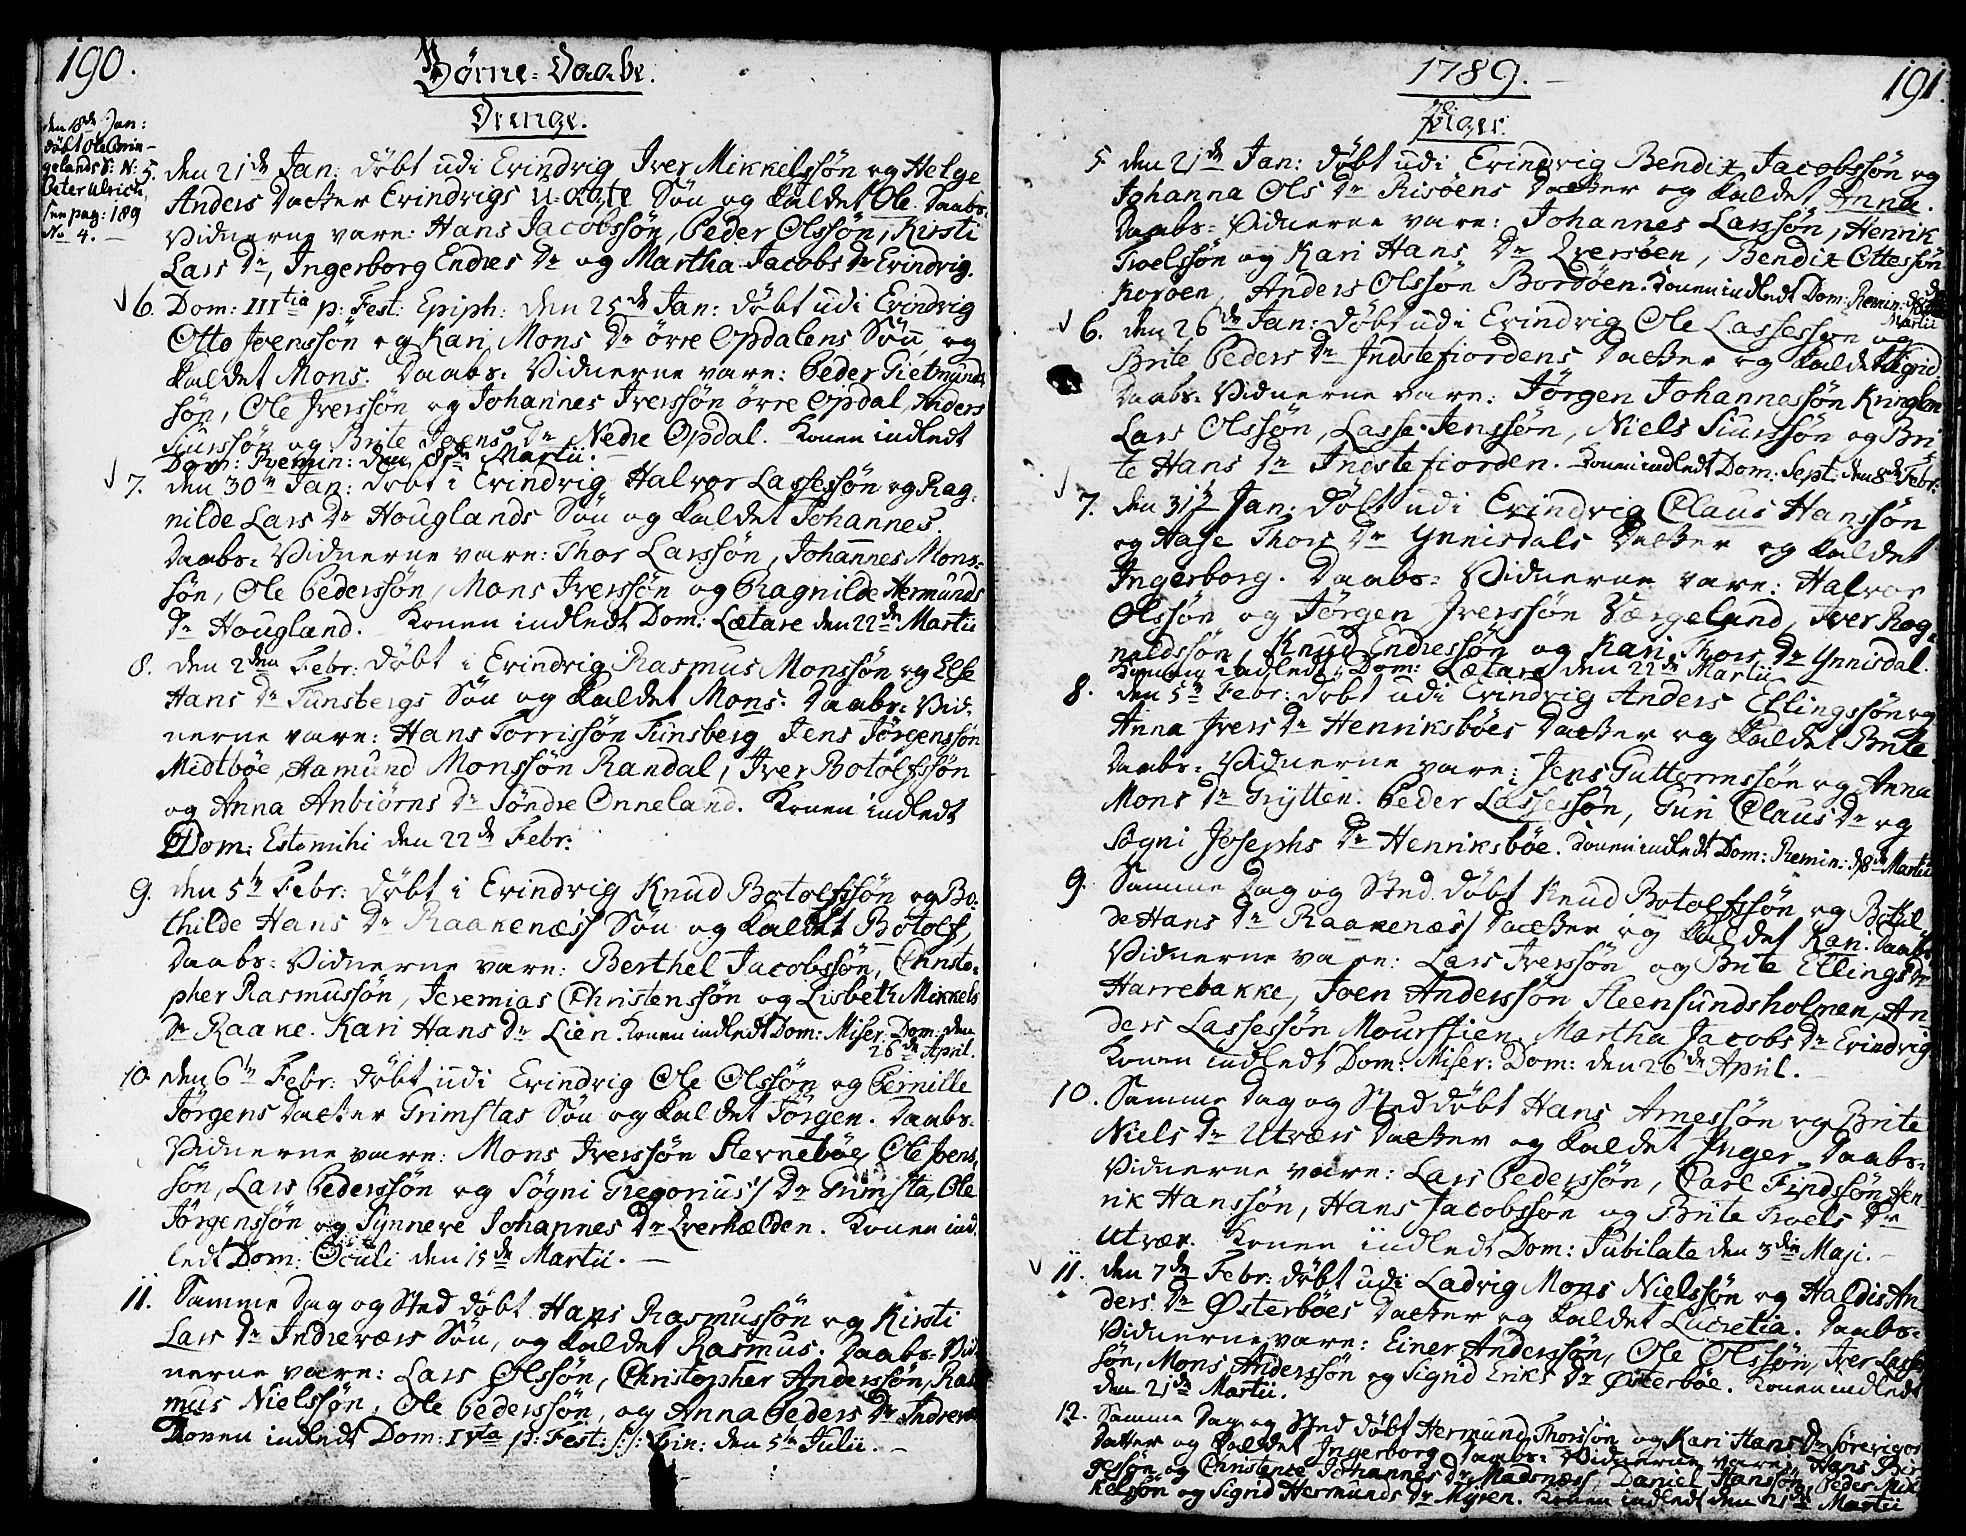 190.
Børne-Daabe.
Drenge.
den 18de Jan:
døbt Ole Brin-
gelands S: N:
Peter Ulrich,
see pag: 189
No 4.
5. den 21de Jan: døbt udi Evindvig Iver Mikkelssøn og Helge
Anders Datter Evindvigs u-ægte Søn og kaldet Ole. Daabs-
Vidnerne vare: Hans Jacobssøn, Peder Olssøn, Kirsti
Lars Dr, Ingerborg Endres Dr og Martha Jacobs Dr Evindvig.
6. Dom: IIItia p: Fest: Epiph: den 25de Jan: døbt udi Evindvig
Otto Joenssøn og Kari Mons Dr øvre Opdalens Søn og
kaldet Mons. Daabs-Vidnerne vare: Peder Gietmunds
søn, Ole Iverssøn og Johannes Iverssøn øvre Opdal, Anders
Siurssøn og Brite Joens Dr Nedre Opdal. Konen indledt
Dom: Remin: den 8de Martii.
7. den 30te Jan: døbt i Evindvig Halvor Lassessøn og Rag-
nilde Lars Dr Houglands Søn og kaldet Johannes.
Daabs-Vidnerne vare: Thor Larssøn, Johannes Mons-
søn, Ole Pederssøn, Mons Iverssøn og Ragnilde Hermunds
Dr Hougland. Konen indledt Dom: Lætare den 22de Martii
8. den 2den Febr: døbt i Evindvig Rasmus Monssøn og Else
Hans Dr Tunsbergs Søn og kaldet Mons. Daabs-Vid-
nerne vare: Hans Torrissøn Tunsberg, Jens Jørgenssøn
Midtbøe, Aamund Monssøn Randal, Iver Botolfssøn
og Anna Anbiørns Dr Søndre Onneland. Konen indledt
Dom: Estomihi den 22de Febr:
9. den 5te Febr: døbt i Evindvig Knud Botolfssøn og Bo-
thilde Hans Dr Raakenæss Søn og kaldet Botolf,
Daabs-Vidnerne vare: Berthel Jacobssøn, Christo-
pher Rasmussøn, Jeremias Christenssøn og Lisbeth Mikkels
Dr Raake. Kari Hans Dr Lien. Konen indledt Dom: Miser: Dom: den
26de April.
10. den 6te Febr: døbt udi Evindvig Ole Olssøn og Pernille
Jørgens Datter Grimstas Søn og kaldet Jørgen. Daabs-
Vidnerne vare: Mons Iverssøn Sternebøe, Ole Joens-
søn, Lars Pederssøn og Søgni Gregorius Dr Grimsta, Ole
Jørgenssøn og Synneve Johannes Dr Qverhælden. Konen ind-
ledt Dom: Oculi den 15de Martii.
11. Samme Dag og Sted døbt Hans Rasmussøn og Kirsti
Lars Dr Indreværs Søn, og kaldet Rasmus. Daabs-Vid-
nerne vare: Lars Olssøn, Christopher Anderssøn, Ras-
mus Nielssøn, Ole Pederssøn, og Anna Peders Dr Indrevær
Konen indledt Dom: IVta p: Fest: S: S: Trin: den 5te Julii.
1789.
191.
Piger.
5. den 21de Jan: døbt udi Evindvig Bendix Jacobssøn og
Johanna Ols Dr Risøens Datter og kaldet Anna.
Daabs-Vidnerne vare: Johannes Larssøn, Henrik
Troelssøn og Kari Hans Dr Qversøen, Bendix Ottessøn
Anders Olssøn Bordøen. Konen indledt Dom: Remin: d 8de
Martii
6. den 26de Jan: døbt udi Evindvig Ole Lassessøn og
Brite Peders Dr Indstefiordens Datter og kaldet Sigrid.
Daabs-Vidnerne vare: Jørgen Johannassøn Kringlen
Lars Olssøn, Lasse Jenssøn, Niels Siurssøn og Bri-
te Hans Dr Indstefiorden. Konen indledt Dom: Sept: den 8de Febr:
7. den 31te Jan: døbt udi Evindvig Claus Hanssøn
og Aase Thors Dr Ynnisdals Datter og kaldet
Ingerborg. Daabs-Vidnerne vare: Halvor
Olssøn og Jørgen Iverssøn Værgeland, Iver Rog-
naldssøn, Knud Endressøn og Kari Thors Dr Ynnisdal.
Konen indledt Dom: Lætare den 22de Martii
8. den 5te Febr: døbt udi Evindvig Anders Ellingssøn og
Anna Ivers Dr Henriksbøes Datter og kaldet Brite
Daabs-Vidnerne vare: Jens Guttormssøn og Anna
Mons Dr Grytten. Peder Lassessøn, Guri Claus Dr og
Søgni Josephs Dr Henriksbøe. Konen indledt Dom: Remin: d 8de Martii
9. Samme Dag og Sted døbt Knud Botolfssøn og Bothil-
de Hans Dr Raakenæss Datter og kaldet Kari. Daabs-
Vidnerne vare: Lars Iverssøn og Brite Ellings Dr
Harrebakke, Joen Anderssøn Steensundsholmen, An-
ders Lassessøn Martha Jacobs Dr Evindvig
Konen indledt Dom: Miser: Dom: den 26de April.
10. Samme Dag og Sted døbt Hans Arnessøn og Brite
Niels Dr Utværs Datter og kaldet Inger. Daabs-
Vidnerne vare: Lars Pederssøn, Carl Findssøn, Hen-
rik Hanssøn, Hans Jacobssøn og Brite Troels Dr
Utvær. Konen indledt Dom: Jubilate den 3die Maji.
11. den 7de Febr: døbt udi Ladvig Mons Nielssøn og Haldis An-
ders Dr Østerbøes Datter og kaldet Lucretia. Daabs-
Vidnerne vare: Einer Anderssøn, Ole Olssøn, Iver Lasse-
søn, Mons Anderssøn og Sigrid Eriks Dr Østerbøe. Konen indledt
den 21de Martii.
12. Samme Dag og Sted døbt Hermund Thorssøn og Kari Hans Dr
Datter og kaldet Ingerborg. Daabs-Vidnerne vare, Hans
og Christence Johannes Dr Madsnæss, Daniel Hanssøn, Peder Mik-
kelssøn og Sigrid Hermunds Dr Myren. Konen indledt den 21de Martii